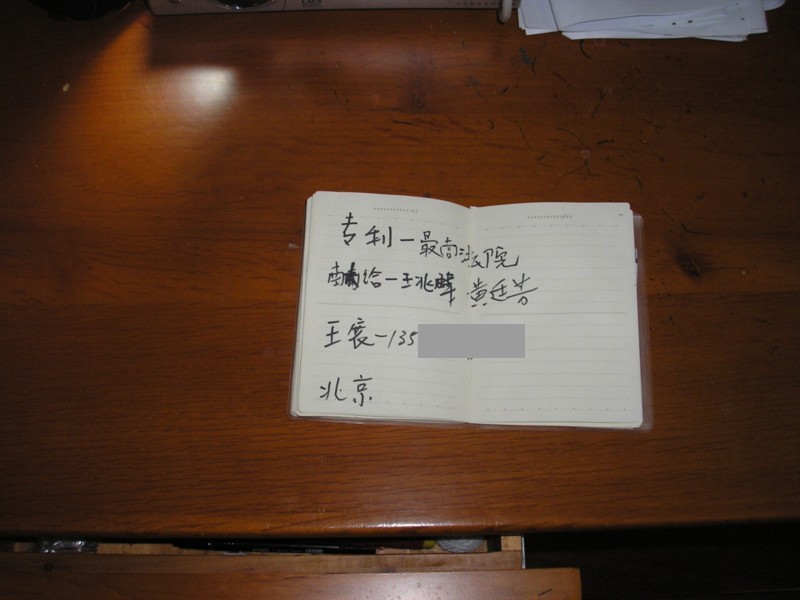 专利—最高法院
给—王兆 黄廷
王宸—135
北京